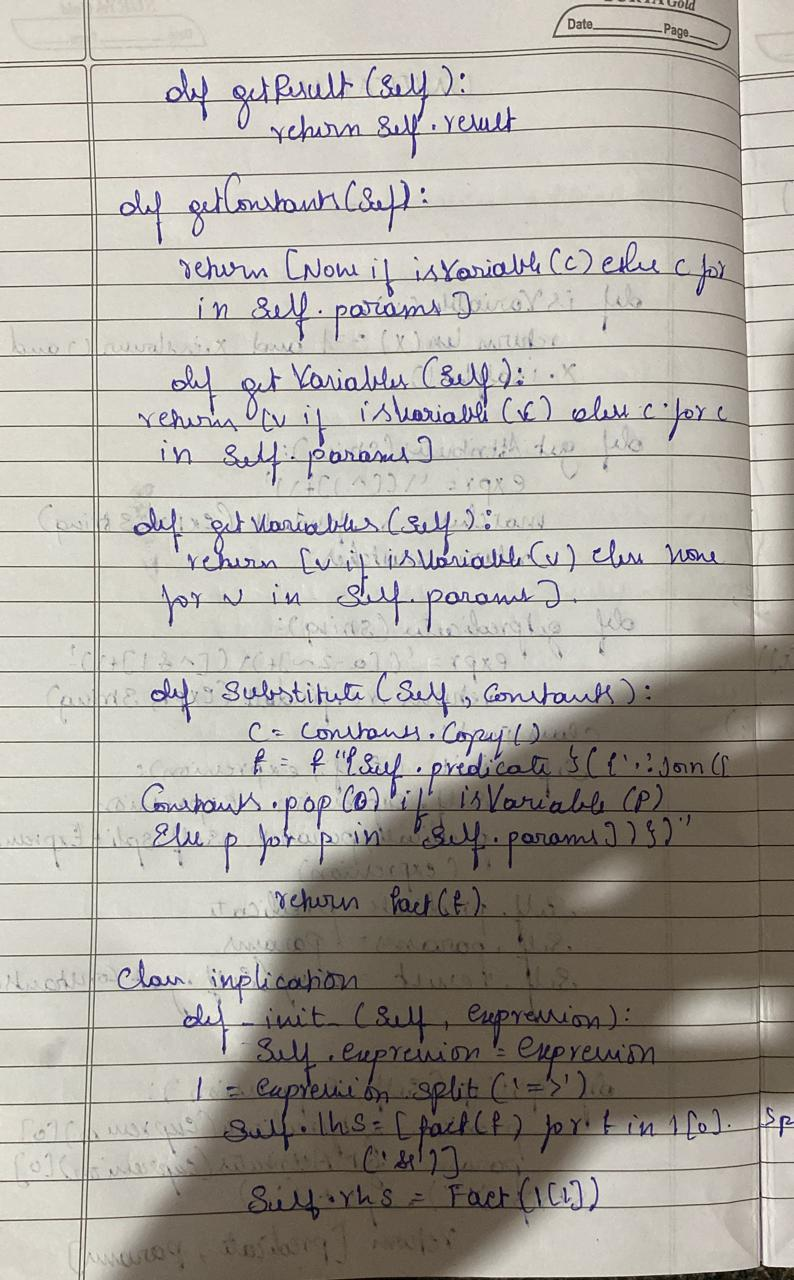 Gold
Date Page
def getResult (Self):
return Self.result
def getConstants (Self):
return [None if isVariable (c) else c for
in Self.params]
def get Variables (Self):
return [v if isVariable (c) else c for c
in Self.params]
def get Variables (Self):
return [v if isVariable (v) else None
for v in Self.params].
def Substitute (Self, Constants):
C = Constants.Copy()
f = f"{Self.predicate}({','.Join([
Constants.pop(0) if isVariable (P)
Else p for p in Self.params])})"
return Fact(f).
Class inplication
def _init_ (Self, expression):
Self.expression = expression
l = expression split ('=>')
Self.lhs = [fact(f) for f in l[0]. Sp
('&')]
Self.rhs = Fact (l[1])